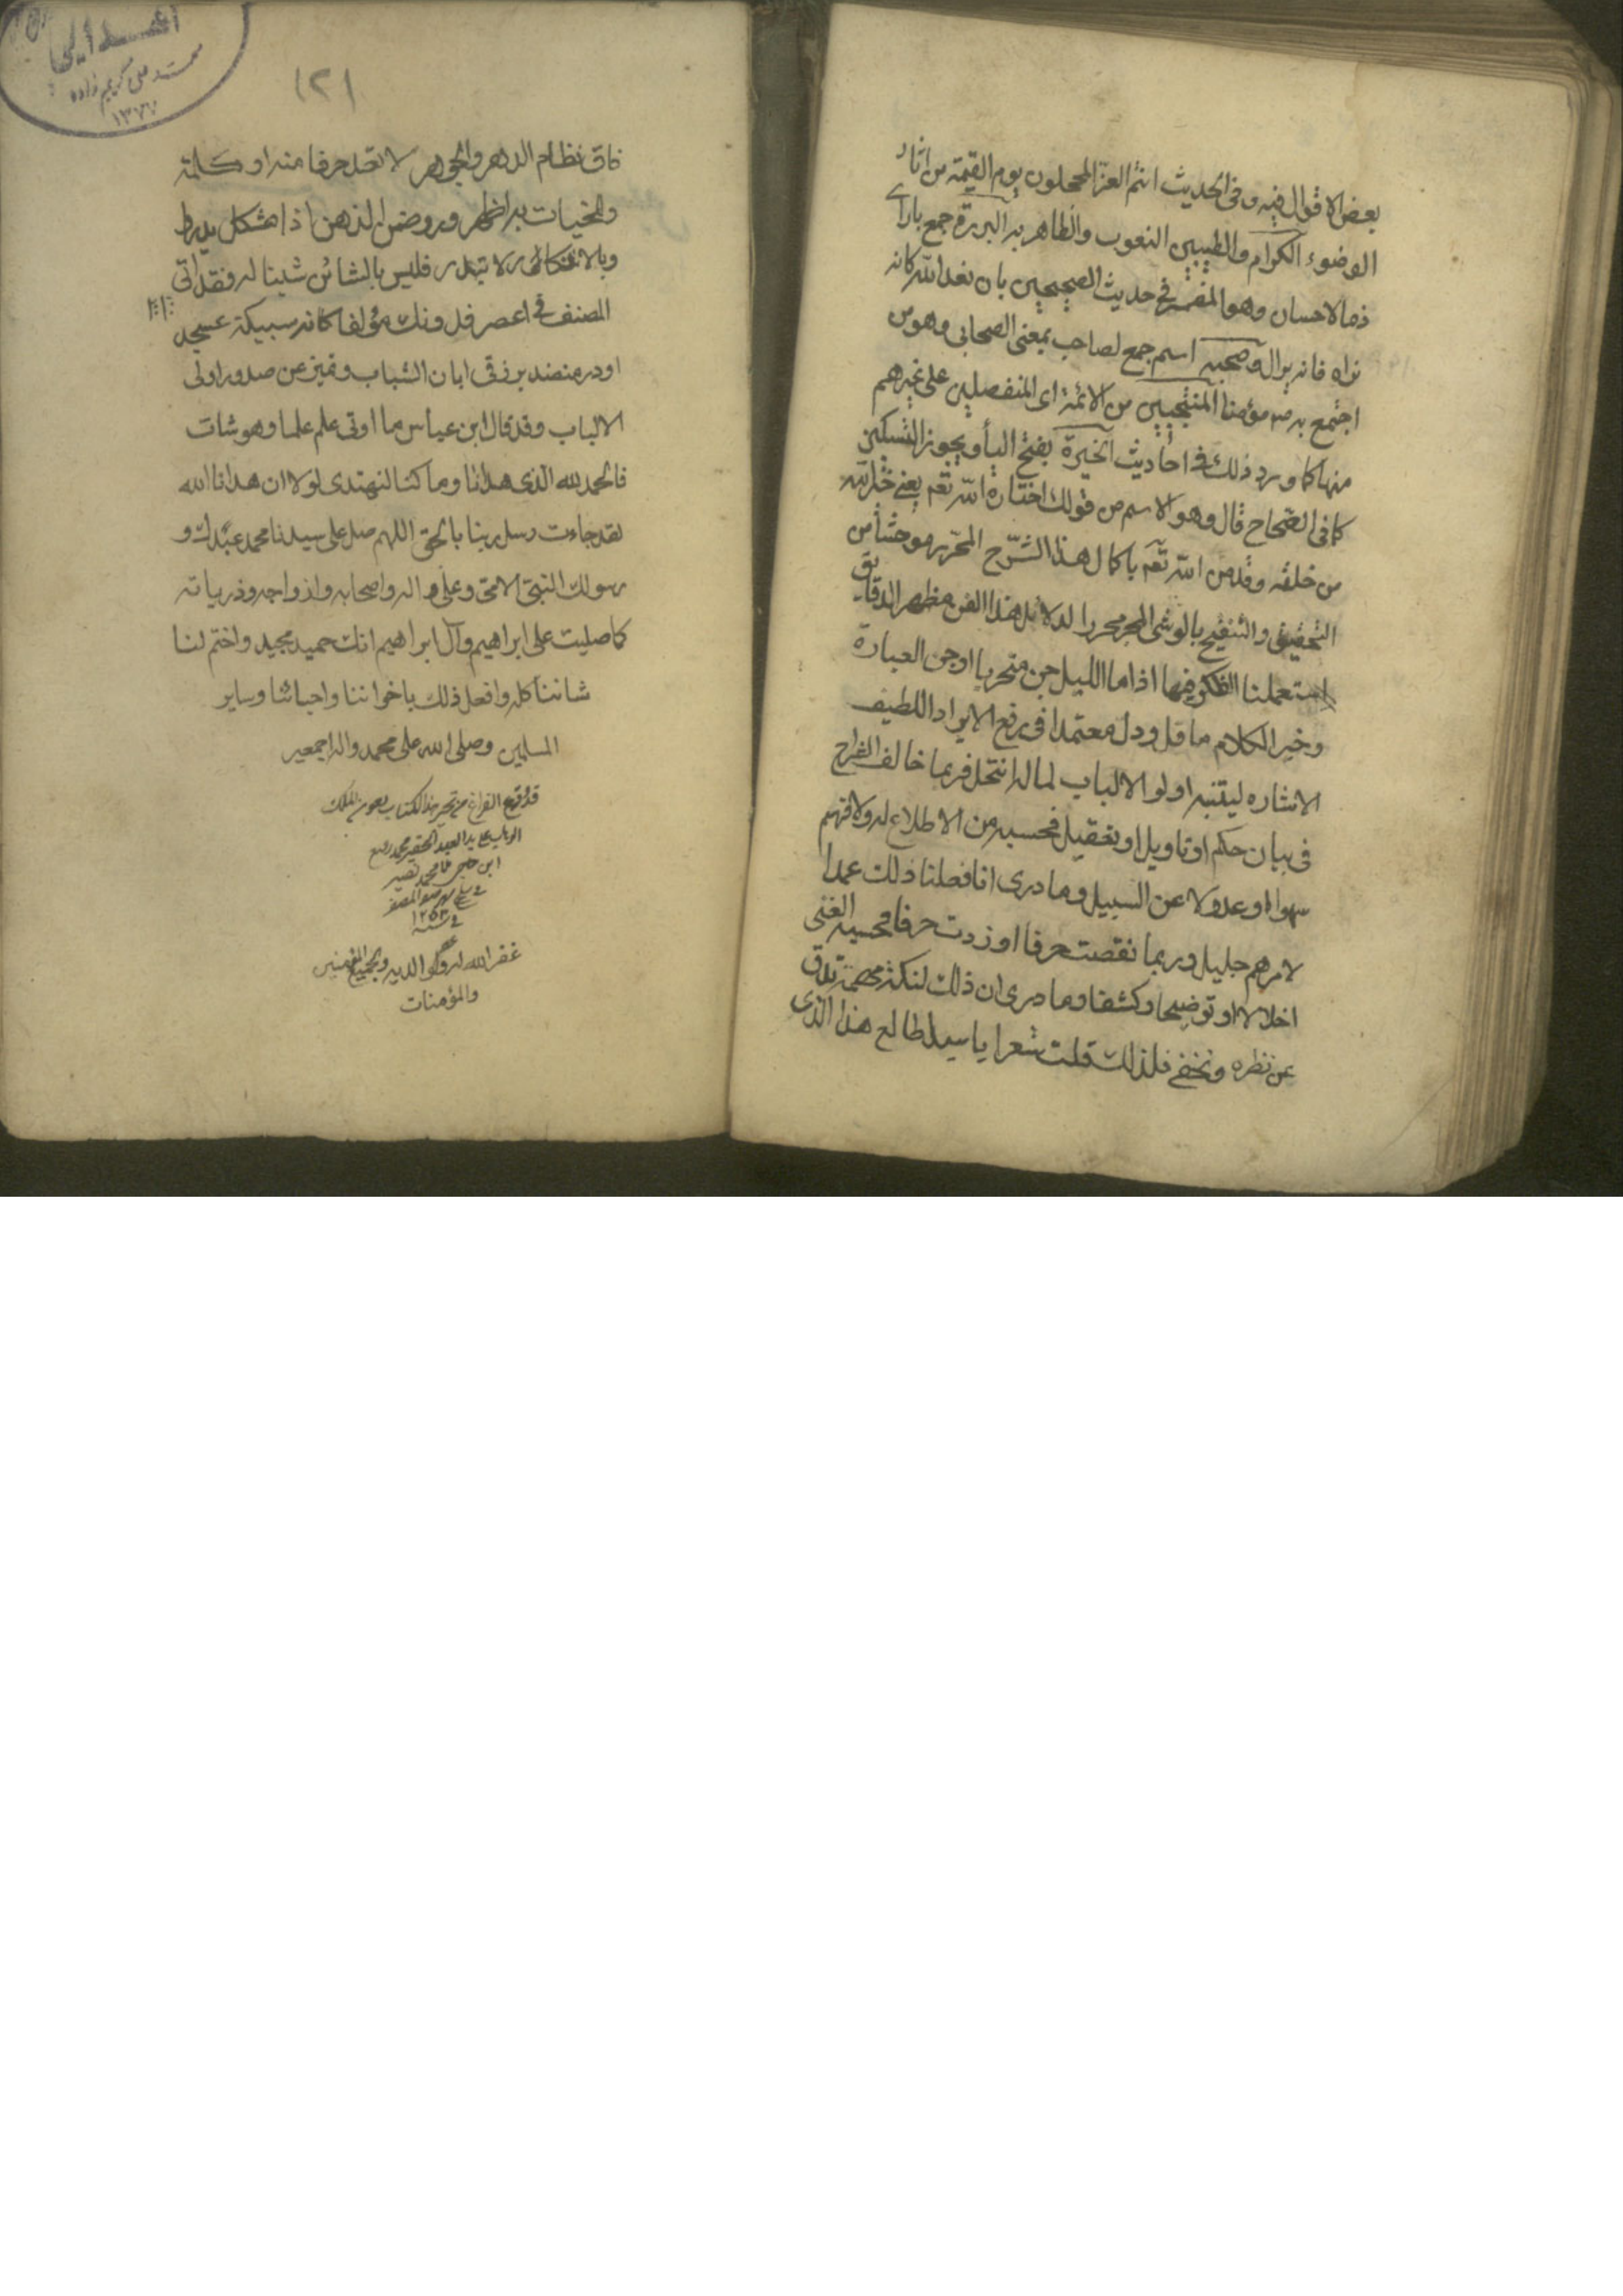 بعض الاقوال فيه وفى الحديث انتم الغر المحجلون يوم القيمة من اثار
الوضوء الكرام والطيبين النعوب والظاهر به البررة جمع بار اى
ذو الاحسان وهو المفسر فى حديث الصحيحين بان تعبد الله كانك
تراه فانه يراك وصحبه اسم جمع لصاحب بمعنى الصحابى وهو من
اجتمع به ص مؤمنا المنتجبين من الائمة اى المنفصلين على غيرهم
منها كما ورد ذلك فى احاديث الخيرة بفتح اليأ ويجوز التسكين
كما فى الصحاح قال وهو الاسم من قولك اختاره الله تعه يعنى
من خلقه وقد من الله تعه باكمال هذا الشرح المحرر موحشا من
التحقيق والتنقيح بالوشى المحبر محررا لدلائل هذا الفن مظهر الدقايق
استعملنا الفكر فيها اذا ما الليل جن متحريا اوجز العبارة
وخير الكلام ما قل ودل معتمدا فى رفع الايراد اللطيف
الاشاره ليتنبه اولو الالباب لما له انتحل فربما خالف الشراح
فى بيان حكم او تاويل او تعقيل فحسبه من الاطلاع له ولا فهم
سهوا او عدولا عن السبيل وما درى انا فعلنا ذلك عمدا
لامر هم جليل وربما نقصت حرفا او زدت حرفا فحسبه الغبى
اخلالا او توضيحا وكشفا وما درى ان ذلك لنكتة مهمة تدق
عن نظره وتخفى فلذلك قلت شعرا يا سيدا طالع هذا الذى
(٢)
فاق نظام الدهر والجوهر لا تعد حرفا منه او كلمة
وللخيات به اظهر وروضن الذهن اذا مشكل يدرك
وبالانكار لا تبدر فليس بالشائن شينا له فقد اتى
المصنف فى اعصر فدونك مؤلفا كانه سبيكة عسجد
او در منضد برزقى ابان الشباب وتميز عن صدور اولى
الالباب وقد قال ابن عباس ما اوتى علم علما وهو شاب
فالحمد لله الذى هدانا وما كنا لنهتدى لولا ان هدانا الله
لقد جاءت رسل ربنا بالحق اللهم صل على سيدنا محمد عبدك و
رسولك النبى الامى وعلى اله واصحابه وازواجه وذرياته
كما صليت على ابراهيم وآل ابراهيم انك حميد مجيد واختم لنا
شاننا كله وافعل ذلك باخواننا واحبائنا وساير
المسلمين وصلى الله على محمد واله اجمعين
قد وقع الفراغ من تحرير هذا الكتاب بعون الملك
الوهاب على يد العبد الحقير محمد رفيع
ابن محمد نصير
فى شهر صفر المظفر
فى سنة ١٢٥٣
غفر الله له ولوالديه ولجميع المؤمنين
والمؤمنات
اهدايى
محمد على كريم زاده
١٣٧٧